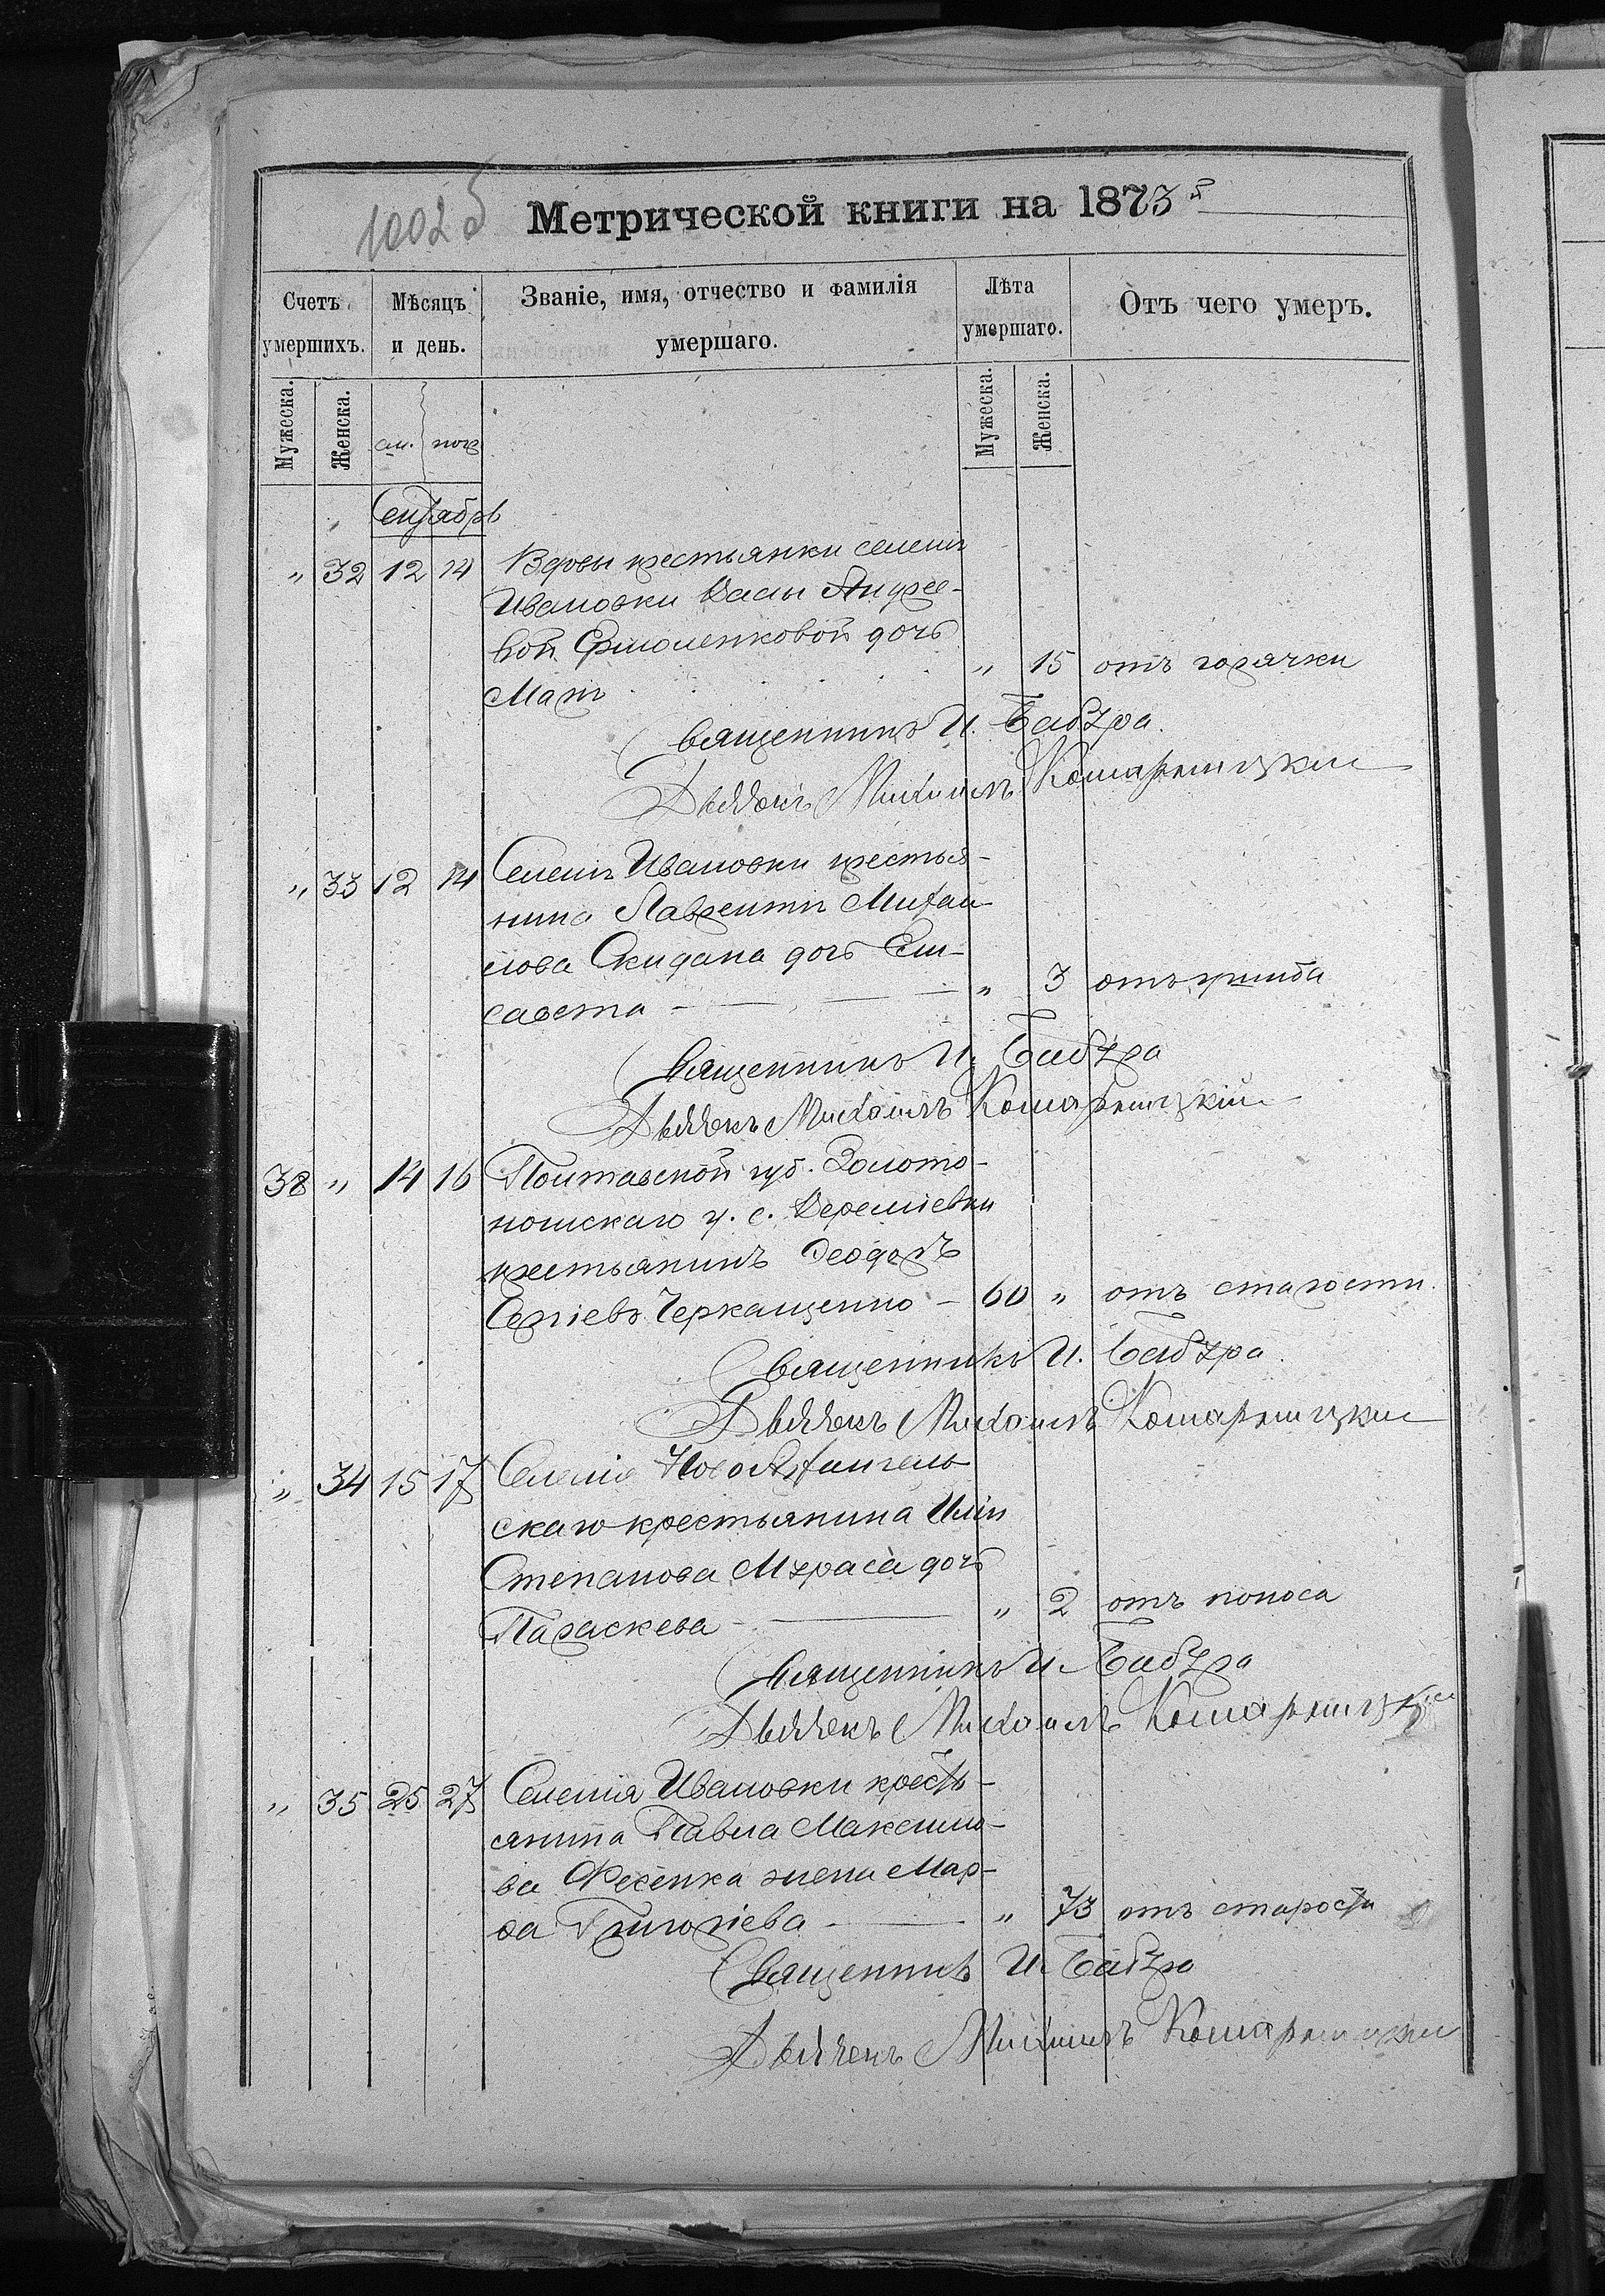 1002 б
Метрической книги на 1873й
Счетъ умершихъ.
Мѣсяцъ и день.
Званіе, имя, отчество и фамилія умершаго.
Лѣта умершаго.
Отъ чего умер.
Мужеска.
Женска.
см.
погр
Мужеска.
Женска.
Сентябрь
" 32 12 14 Вдовы крестьянки селенія
Ивановки Васы Андрее-
вой Ермоленковой дочь
Мат " 15 отъ горячки
Священникъ И. Бабура.
Дьячокъ Михаилъ
" 33 12 14 Селенія Ивановки крестья-
нина Лаврентія Михай-
лова Скидана дочь Ели-
савета " 3 отъ
Священникъ И. Бабура
Дьячокъ Михаилъ
38 " 14 16 Полтавской губ. Золото-
ношскаго у. с. Веремѣевки
крестьянинъ Феодоръ
Сергіевъ Черкащенко - 60 " отъ старости
Священникъ И. Бабура.
Дьячокъ Михаилъ
" 34 15 17 Селенія НовоАрхангель
скаго крестьянина Иліи
Степанова Мураса дочь
Параскева " 2 отъ поноса
Священникъ И. Бабура
Дьячокъ Михаилъ
" 35 25 27 Селенія Ивановки кресть-
янина Павла Максимо-
ва Фесенка жена Мар-
ѳа Григоріева " 73 отъ старости
Священникъ И. Бабура
Дьячекъ Михаилъ